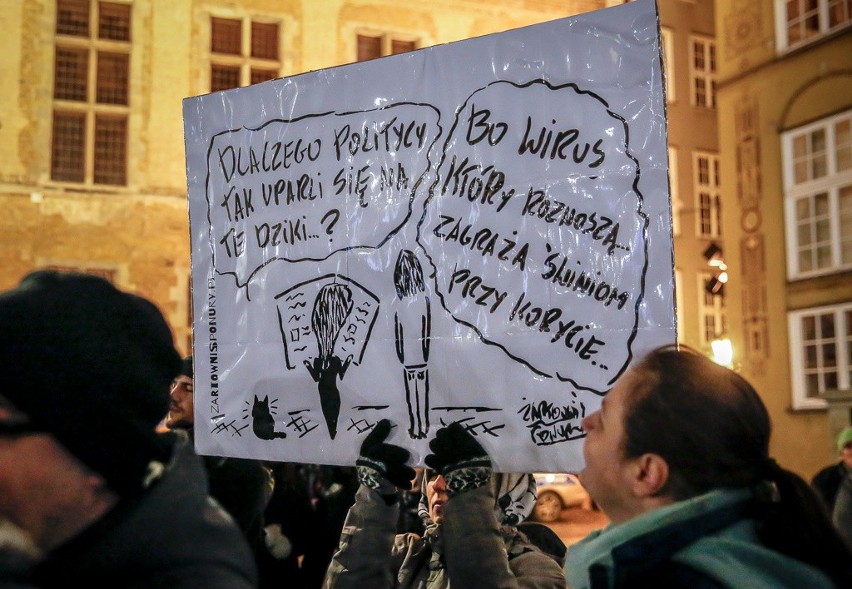 DLACZEGO POLITYCY
TAK UPARLI SIĘ NA
TE DZIKI...?
BO WIRUS
KTÓRY ROZNOSZĄ...
ZAGRAŻA ŚWINIOM
PRZY KORYCIE...
ŻARTOWNIŚ
PONURY